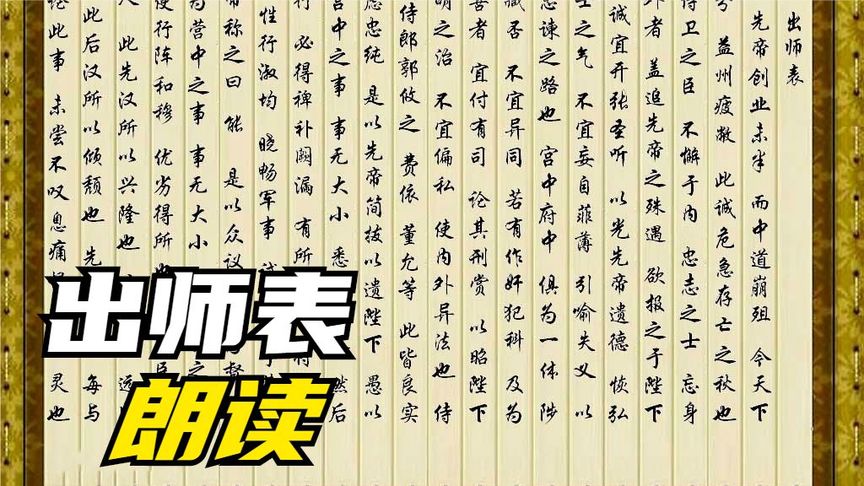 出师表
先帝创业未半 而中道崩殂 今天下
分 益州疲敝 此诚危急存亡之秋也
侍卫之臣 不懈于内 忠志之士 忘身
外者 盖追先帝之殊遇 欲报之于陛下
诚宜开张圣听 以光先帝遗德 恢弘
士之气 不宜妄自菲薄 引喻失义 以
忠谏之路也 宫中府中 俱为一体 陟
臧否 不宜异同 若有作奸犯科 及为
善者 宜付有司 论其刑赏 以昭陛下
明之治 不宜偏私 使内外异法也 侍
侍郎郭攸之 费依 董允等 此皆良实
虑忠纯 是以先帝简拔以遗陛下 愚以
宫中之事 事无大小 悉 然后
行 必得裨补阙漏 有所
性行淑均 晓畅军事 试
帝称之曰 能 是以众议 督
为营中之事 事无大小 之
使行阵和穆 优劣得所也 臣
此先汉所以兴隆也 远
此后汉所以倾颓也 先 每与
论此事 未尝不叹息痛 灵也
出师表
朗读